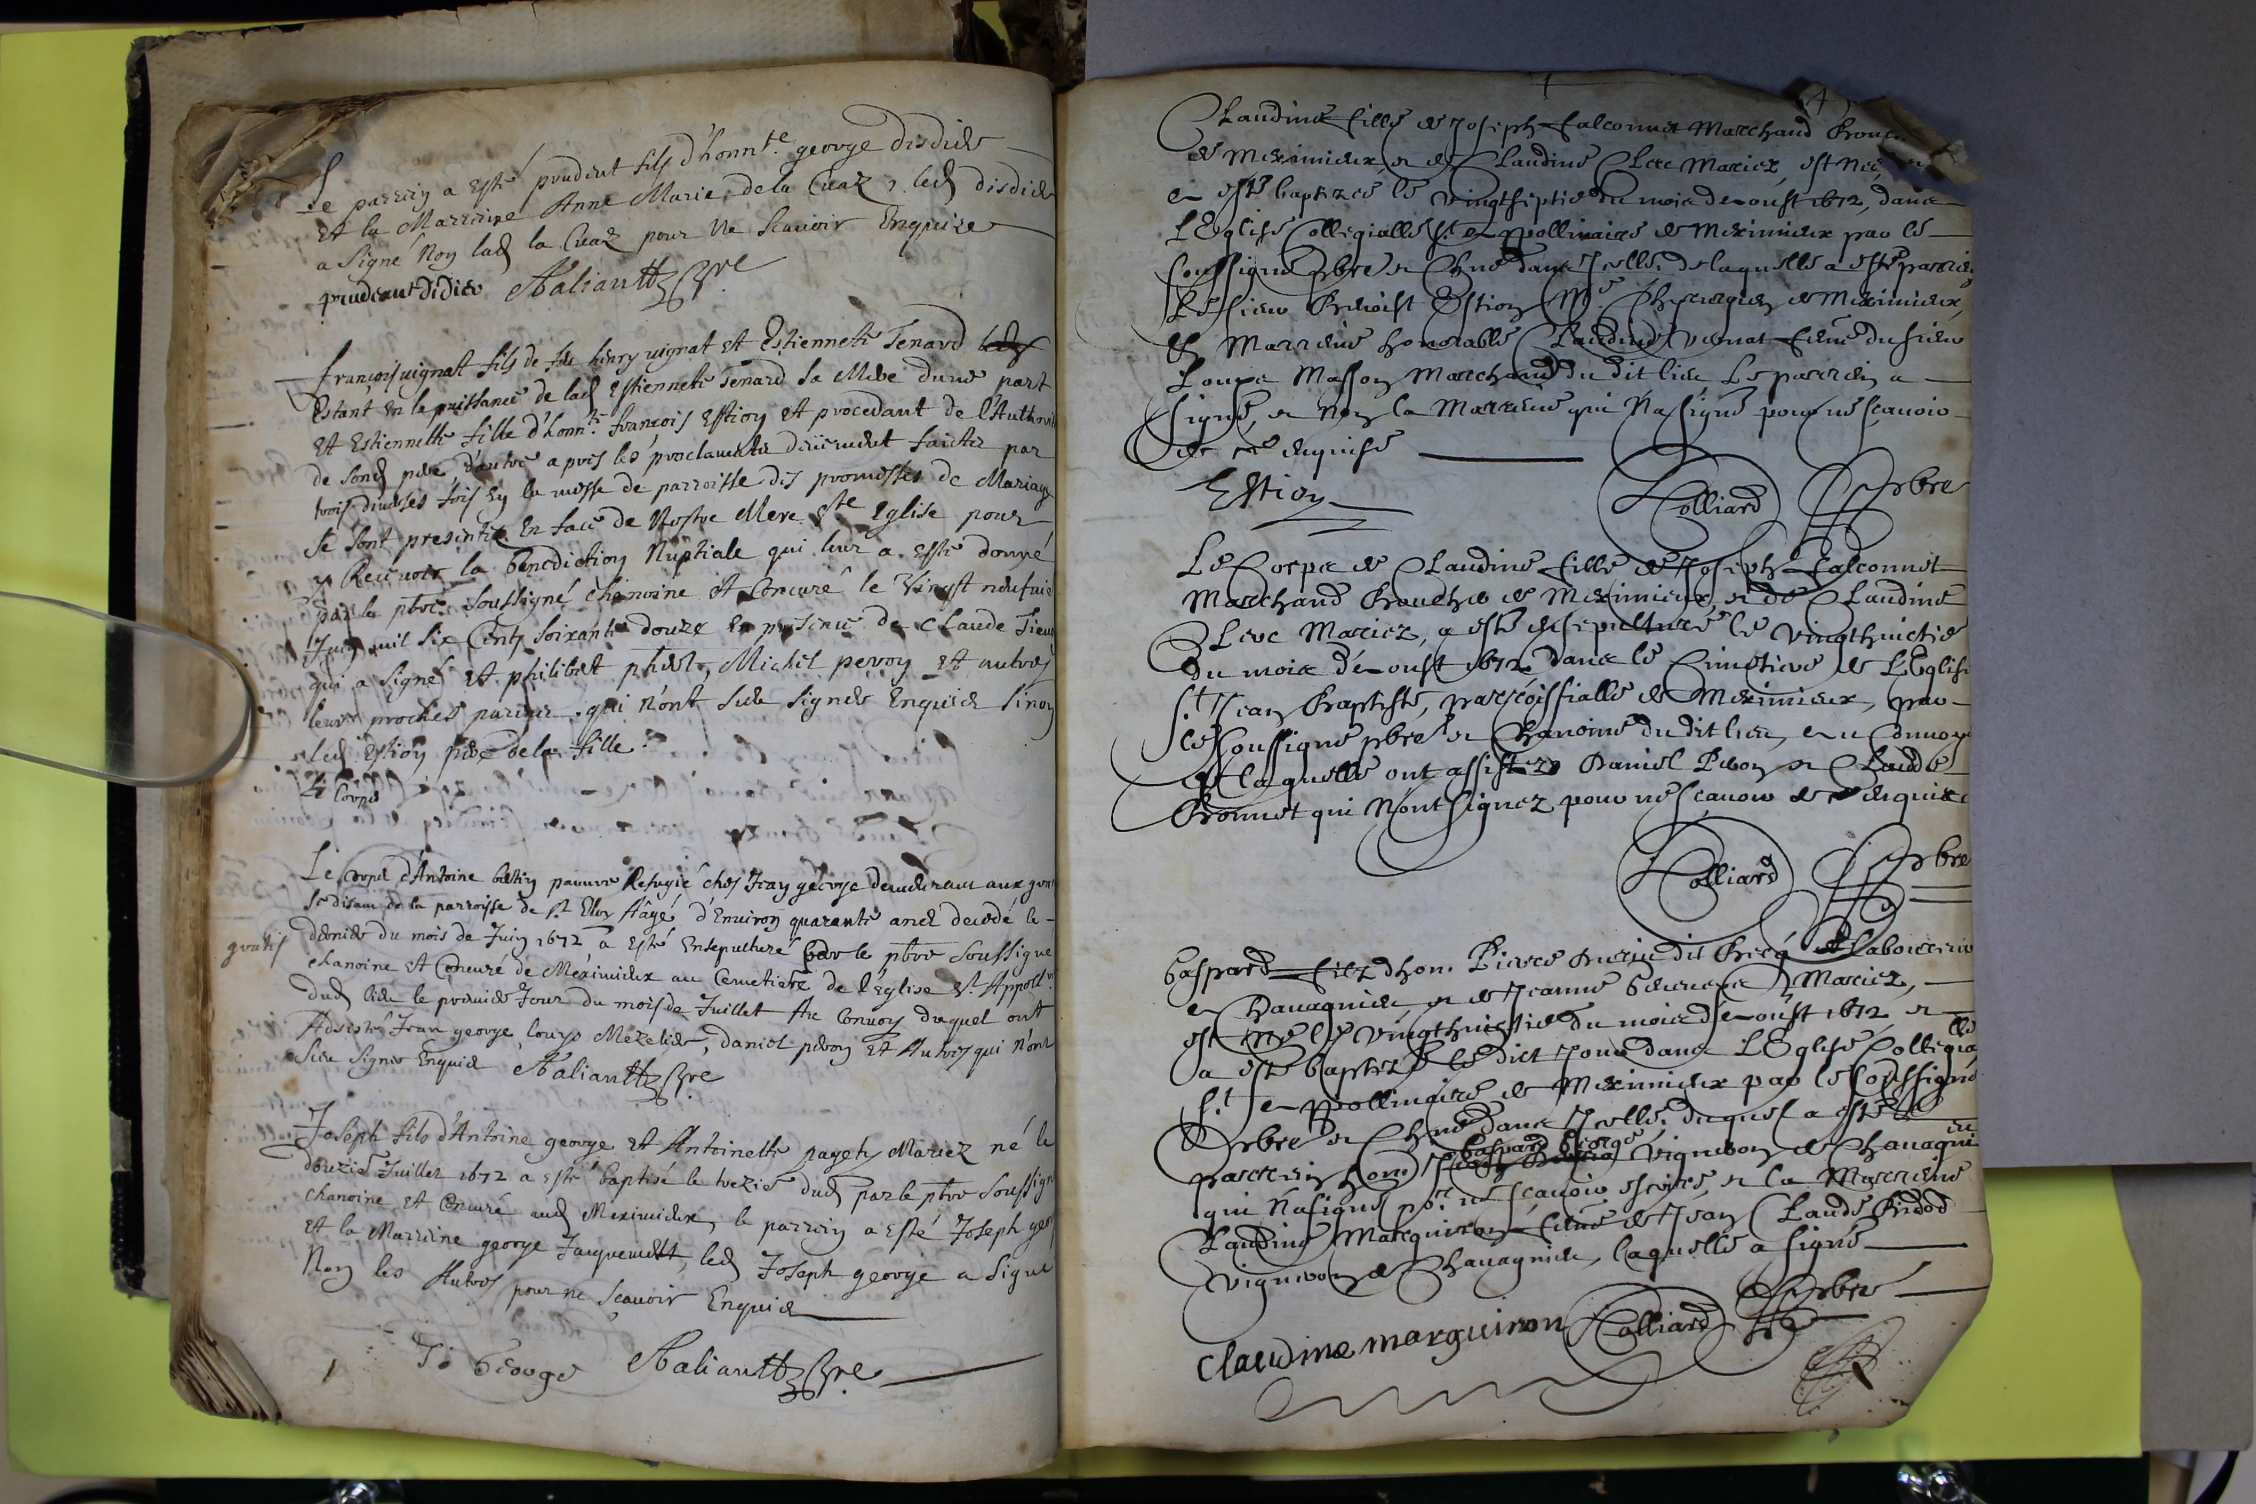 Le parrin a esté prudent fils d'honnte. george disdier
et la Marrine Anne Marie de la Cuaz, led disdier
a Signé Non lad la Cuaz pour Ne Scauoir Enquize
prudeant didier Aaliantz Pre
francois uignat fils de feu henry uignat et Estiennete Tenard
Estant en la puissance de lad Estiennete Tenard Sa Mere dune part
et Estiennette fille d'honn. francois Estion et procedant de l'Authorit
de Sond pere d'autre apres les proclamatz deuement faites par
trois diuerses fois En la messe de parroisse des promesses de Mariage
Se Sont presentez En face de Nostre Mere Ste Eglise pour
y Receuoir la benediction Nuptiale qui leur a Esté donné
par le pbre Soussigné chanoine et Concuré le Vingt neufuie
Juin mil Six Cents Soixante douze En presence de Claude
qui a Signé et philibert Michel peron et autres
leurs proches parens qui n'ont Sceu Signer Enquis Sinon
led Estion pere de la fille
Le Corps
Le Corps d'Antoine pauure Refugié ches Jean george demeurant aux
Se disant de la parroisse de St Eloy Aagé d'Enuiron quarante ans decedé le
dernier du mois de Juin 1672 a Esté Ensepulturé par le pbre Soussigné
gratis
chanoine et Concuré de Meximieux au Cemetiere de l'Eglise St Appoll.
dud lieu le premier Jour du mois de Juillet Au Conuoy duquel ont
Adsisté Jean george, Louys Mezelier, daniel peron et Autres qui n'ont
Sceu Signer Enquis Aaliantz Pre
Joseph fils d'Antoine george et Antoinette pagety Mariez né le
douzie Juillet 1672 a esté baptisé le trezie dud par le pbre Soussigné
chanoine et Concuré aud Meximieux, le parrin a Esté Joseph geor
et la Marrine george Jacquemett, led Joseph george a Signe
Non les Autres pour ne Scauoir Enquis
Jo George Aaliantz Pre
Claudine fille de Joseph Falconnet Marchand
de Meximieux, et de Claudine Clerc Mariez, est Née,
a esté baptizée le vingtseptie du mois d'aoust 1672, dans
L'Eglise Collegialle St Appollinaire de Meximieux par le
soussigné pbre et Chne dans Icelle, de laquelle a esté parrien
Le sieur Benoist Estion Me Chyrurgien de Meximieux,
Et Marreine honorable Claudine vernat feme du sieur
Loups Masson Marchand du dit lieu Le parrein a
signé, et Non la Marreine qui Na signé pour ne scauoir
de ce enquise
Estion Colliard Pbre
Le Corps de Claudine fille de Joseph Falconnet
Marchand de Meximieux, et de Claudine
Clerc Mariez, a esté ensepulturé le vingthuictie
du mois d'aoust 1672 dans le Cimetiere de L'Eglise
St Jean Baptiste, parroissialle de Meximieux, par
le soussigné pbre et Chanoine du dit lieu, au Conuoy
de laquelle ont assistez Daniel Peron et Claude
Bonnet qui N'ont signez pour ne scauoir de ce enquis
Colliard Pbre
Gaspard filz d'hon. Pierre dit laboureur
a Chauagnieu, et de Jeanne George Mariez,
est Né le vingthuictie du mois d'aoust 1672, et
a esté baptizé le dict Jour dans L'Eglise Collegialle
St Appollinaire de Meximieux par le soussigné
Pbre et Chne dans Icelle, duquel a esté
parrein hon. Gaspard George vigneron de Chauagnieu
qui Na signé pr ne scauoir escrire, et la Marreine
Claudine Marquiron feme de Jean Claude
vigneron de Chauagnieu, laquelle a signé
claudine marguiron Colliard Pbre